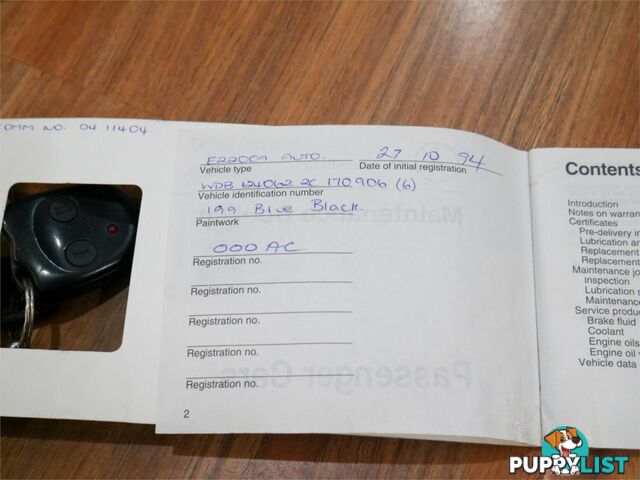 COMM NO. 04 11404
E220CA AUTO.
Vehicle type
27 10 94
Date of initial registration
WDB 124062 2C 170906 (6)
Vehicle identification number
199 Blue Black
Paintwork
000 AC
Registration no.
Registration no.
Registration no.
Registration no.
Registration no.
2
Maintenance
Passenger Cars
Contents
Introduction
Notes on warran
Certificates
Pre-delivery in
Lubrication an
Replacement
Replacement
Maintenance jo
Inspection
Lubrication s
Maintenanc
Service produc
Brake fluid
Coolant
Engine oils
Engine oil v
Vehicle data
PUPPYLIST